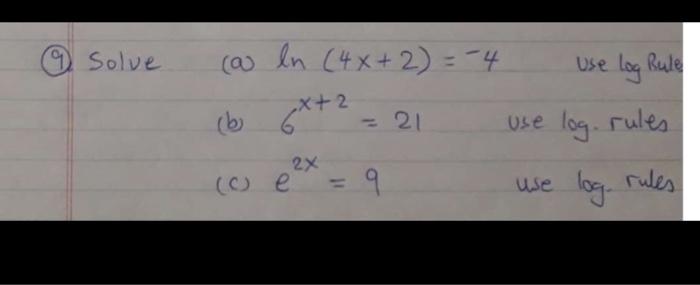 9 Solve (a) ln (4x+2) = -4 Use log Rule
(b) 6^x+2 = 21 use log. rules
(c) e^2x = 9 use log. rules